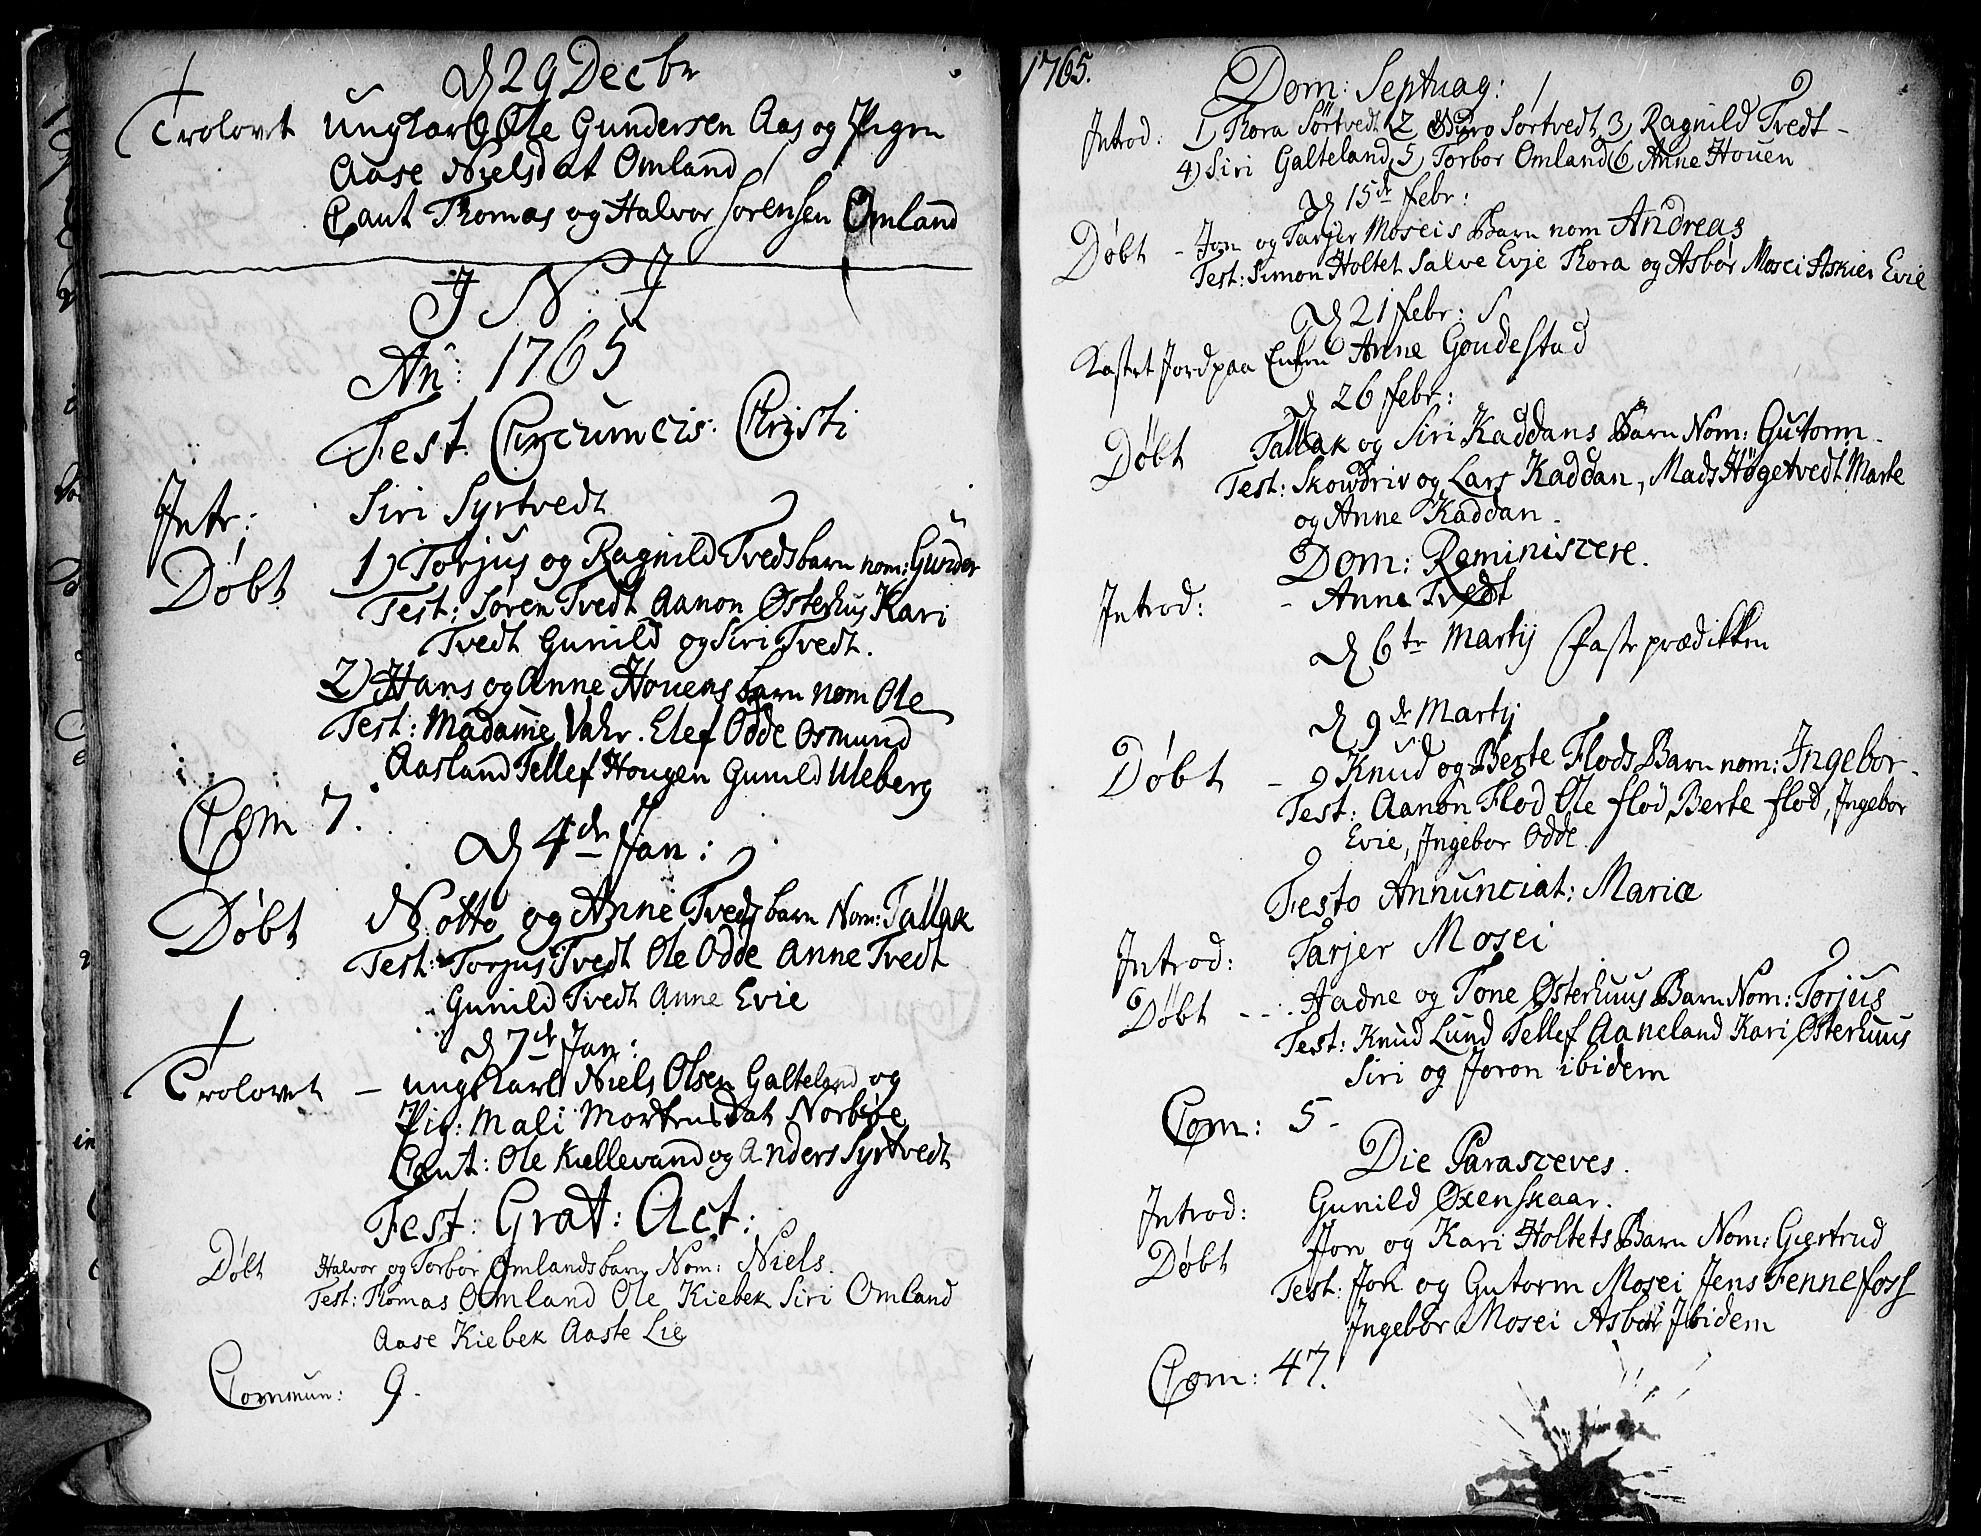 d 29 Decbr
Trolovet Ungkarl Ole Gundersen Aas og Pigen
Aase Nielsdat Omland
Caut Thomas og Halvor Sørensen Omland
J N: J
Anº: 1765
Fest Circumcis: Christi
Intr: Siri Syrtvedt
Døbt 1) Torjus og Ragnild Tveds barn nom: Gunder
Test: Søren Tvedt Aanon Østerhus Kari
Tvedt Gunild og Siri Tvedt.
2) Hans og Anne Houens barn nom Ole
Test: Madame Vahr. Elef Odde Osmund
Aasland Tellef Hougen Gunild Uleberg
Com 7.
d 4de Jan:
Døbt Notto og Anne Tveds barn Nom: Tallak
Test: Torjus Tvedt Ole Odde Anne Tvedt
Gunild Tvedt Anne Evie
d 7de Jan:
Trolovet – ungkarl Niels Olsen Galteland og
Pig: Mali Mortensdat Norbøe
Caut: Ole Kiellevand og Anders Syrtvedt
Fest: Grat: Act:
Døbt Halvor og Torbor Omlands barn Nom: Niels.
Test: Thomas Omland Ole Kiebek Siri Omland
Aase Kiebek Aaste Lie
Commun: 9.
1765.
Dom: Septuag:
Introd: 1) Thora Sørtvedt 2 Guro Sørtvedt 3) Ragnild Tvedt –
4) Siri Galteland 5) Torbor Omland 6 Anne Houen
d 15de febr:
Døbt – Jon og Tarjer Moseis Barn nom Andreas
Test: Simon Holtet Salve Evje Thora og Asbør Mosei Askier Evie
d 21 febr:
Kastet Jord paa Enken Anne Goudestad
d 26 febr:
Døbt Tallak og Siri Kaddans Barn Nom: Gutorm
Test: Skowdriv og Lars Kaddan, Mads Høgetvedt Marte
og Anne Kaddan.
Dom: Reminiscere.
Introd: – Anne Tvedt
d 6te Martij Faste prædikken
d 9de Martij
Døbt – Knud og Berte Flods Barn nom: Ingebor
Test: Aanon Flod Ole flod, Berte flod, Ingebor
Evie, Ingebor Odde.
Festo Annunciat: Mariæ
Introd: Tarjer Mosei
Døbt - - . Hadne og Tone Østerhuus Barn Nom: Torjus
Test: Knud Lund Tellef Aaneland Kari Østerhuus
Siri og Joron ibidem
Com: 5 -
Die Parasceves.
Introd: Gunild Oxenskaar.
Døbt Jon og Kari Holtets Barn Nom: Giertrud
Test: Jon og Gutorm Mosei Jens Fennefoss
Ingebor Mosei Asbør Ibidem
Com: 47.